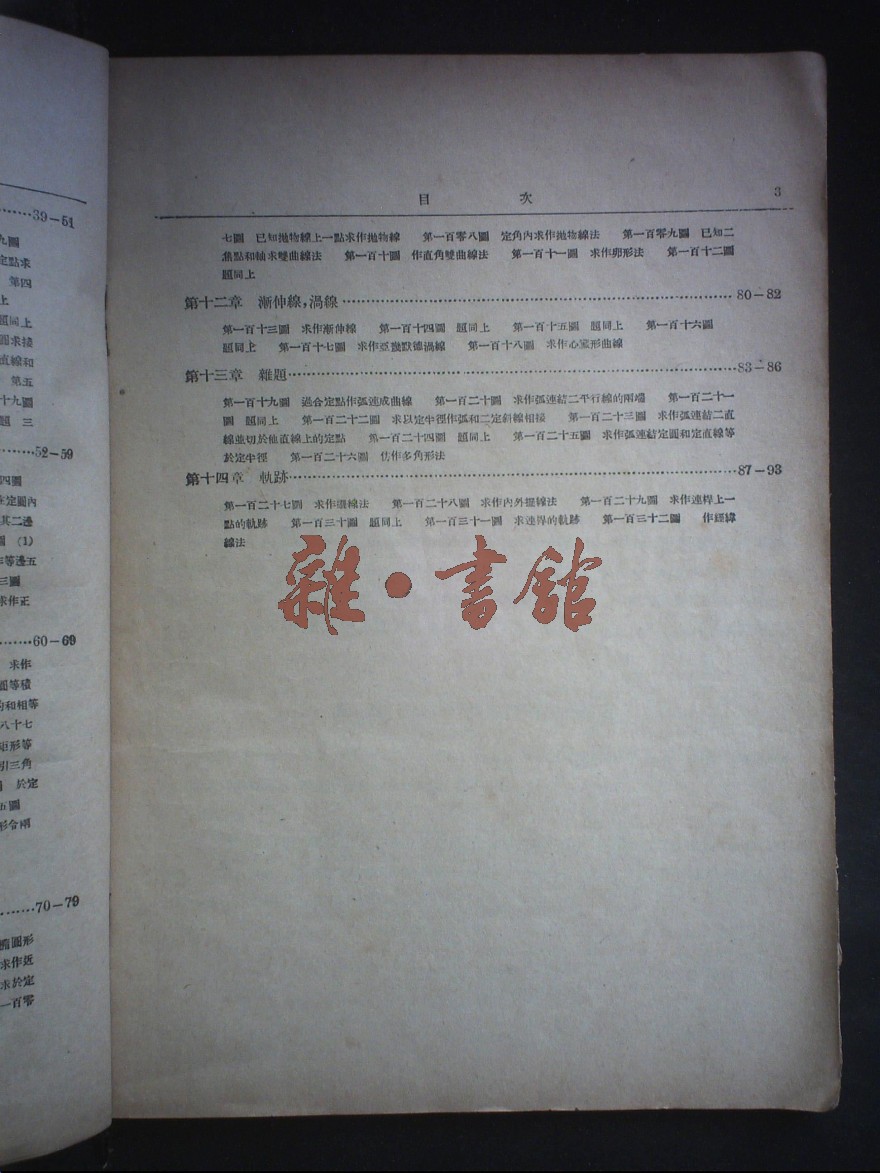 39－51
九圖
定點求
第四
上
題同上
圓求接
直線和
第五
十九圖
題 三
52－59
四圖
在定圓內
其二邊
圖 (1)
作等邊五
三圖
求作正
60－69
求作
圓等積
的和相等
八十七
矩形等
引三角
於定
五圖
形令兩
70－79
橢圓形
求作近
求於定
一百零
目 次 3
七圖 已知拋物線上一點求作拋物線 第一百零八圖 定角內求作拋物線法 第一百零九圖 已知二
焦點和軸求雙曲線法 第一百十圖 作直角雙曲線法 第一百十一圖 求作卵形法 第一百十二圖
題同上
第十二章 漸伸線，渦線……80－82
第一百十三圖 求作漸伸線 第一百十四圖 題同上 第一百十五圖 題同上 第一百十六圖
題同上 第一百十七圖 求作亞幾默德渦線 第一百十八圖 求作心臟形曲線
第十三章 雜題……83－86
第一百十九圖 過合定點作弧連成曲線 第一百二十圖 求作弧連結二平行線的兩端 第一百二十一
圖 題同上 第一百二十二圖 求以定半徑作弧和二定斜線相接 第一百二十三圖 求作弧連結二直
線並切於他直線上的定點 第一百二十四圖 題同上 第一百二十五圖 求作弧連結定圓和定直線等
於定半徑 第一百二十六圖 仿作多角形法
第十四章 軌跡……87－93
第一百二十七圖 求作擺線法 第一百二十八圖 求作內外擺線法 第一百二十九圖 求作連桿上一
點的軌跡 第一百三十圖 題同上 第一百三十一圖 求連桿的軌跡 第一百三十二圖 作經緯
線法
雜·書館